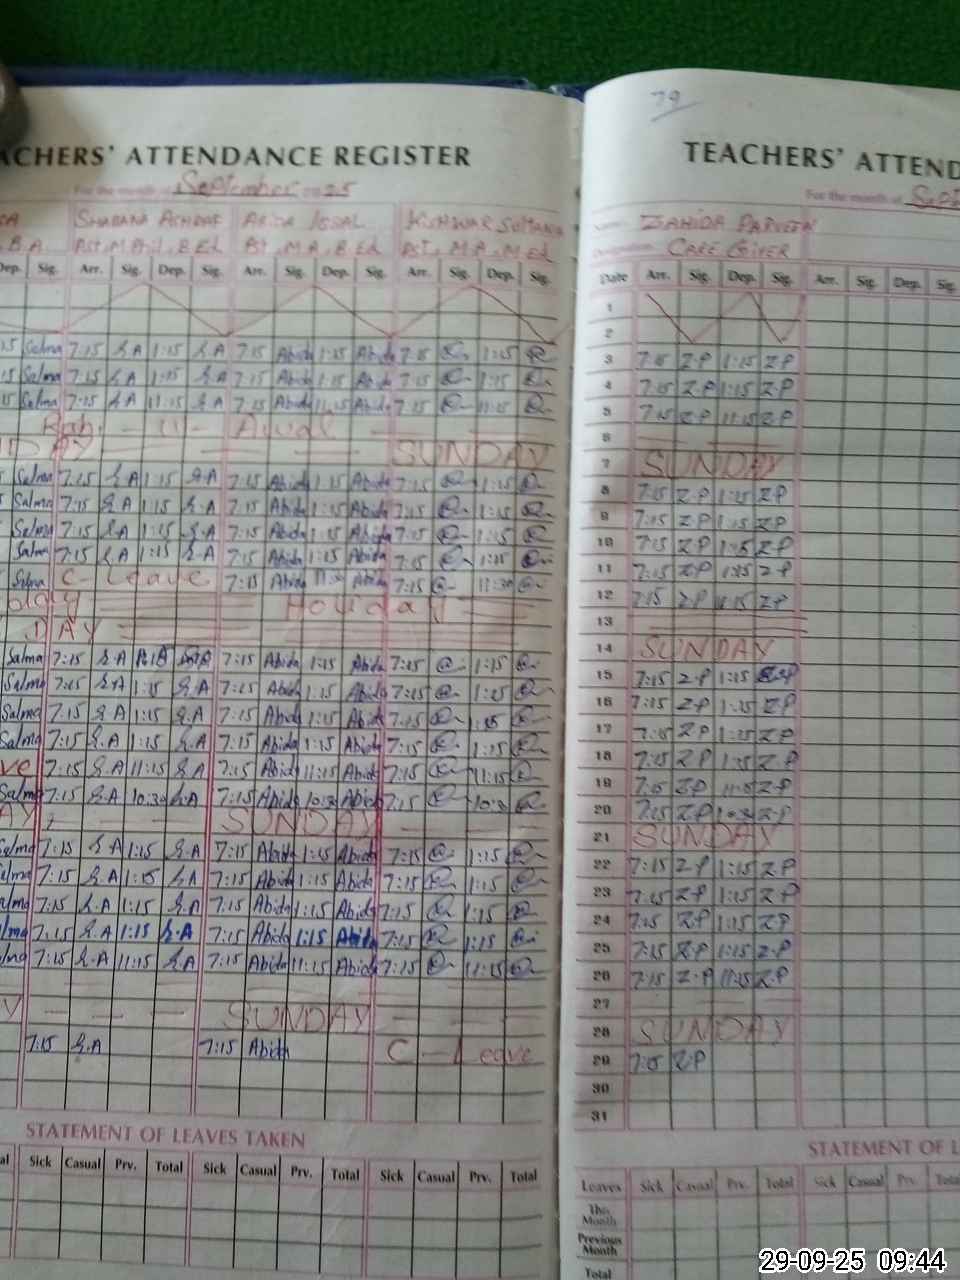 ACHERS' ATTENDANCE REGISTER
For the month of September 2025
SHABANA ASHRAF ABIDA KISHWAR SULTANA
B.A. Ast, M.A, B.Ed Ast, M.A, B.Ed Ast, M.A, M.Ed
Dep. Sig. Arr. Sig. Dep. Sig. Arr. Sig. Dep. Sig. Arr. Sig. Dep. Sig.
Salma 7:15 S.A 1:15 S.A 7:15 Abida 1:15 Abida 7:15 1:15
Salma 7:15 S.A 1:15 S.A 7:15 Abida 1:15 Abida 7:15 1:15
Salma 7:15 S.A 11:15 S.A 7:15 Abida 11:15 Abida 7:15 11:15
Rabi - U - Awal
DAY SUNDAY
Salma 7:15 S.A 1:15 S.A 7:15 Abida 1:15 Abida 7:15 1:15
Salma 7:15 S.A 1:15 S.A 7:15 Abida 1:15 Abida 7:15 1:15
Salma 7:15 S.A 1:15 S.A 7:15 Abida 1:15 Abida 7:15 1:15
Salma 7:15 S.A 1:15 S.A 7:15 Abida 1:15 Abida 7:15 1:15
Salma C- Leave 7:15 Abida Abida 7:15 11:30
Holiday
DAY
Salma 7:15 S.A 7:15 Abida 1:15 Abida 7:15 1:15
Salma 7:15 S.A 1:15 S.A 7:15 Abida 1:15 Abida 7:15 1:15
Salma 7:15 S.A 1:15 S.A 7:15 Abida 1:15 Abida 7:15 1:15
Salma 7:15 S.A 1:15 S.A 7:15 Abida 1:15 Abida 7:15 1:15
ve 7:15 S.A 11:15 S.A 7:15 Abida 11:15 Abida 7:15 11:15
Salma 7:15 S.A 10:30 S.A 7:15 Abida 10:30 Abida 7:15 10:30
AY SUNDAY
Salma 7:15 S.A 1:15 S.A 7:15 Abida 1:15 Abida 7:15 1:15
elma 7:15 S.A 1:15 S.A 7:15 Abida 1:15 Abida 7:15 1:15
alma 7:15 S.A 1:15 S.A 7:15 Abida 1:15 Abida 7:15 1:15
lma 7:15 S.A 1:15 S.A 7:15 Abida 1:15 Abida 7:15 1:15
lma 7:15 S.A 11:15 S.A 7:15 Abida 11:15 Abida 7:15 11:15
Y - - - SUNDAY - -
7:15 S.A 7:15 Abida C - Leave
STATEMENT OF LEAVES TAKEN
al Sick Casual Prv. Total Sick Casual Prv. Total Sick Casual Prv. Total
79
TEACHERS' ATTEND
For the month of Sept
Name ZAHIDA PARVEEN
Designation CARE GIVER
Date Arr. Sig. Dep. Sig. Arr. Sig. Dep. Sig.
1
2
3 7:15 Z.P 1:15 Z.P
4 7:15 Z.P 1:15 Z.P
5 7:15 Z.P 11:15 Z.P
6
7 SUNDAY
8 7:15 Z.P 1:15 Z.P
9 7:15 Z.P 1:15 Z.P
10 7:15 Z.P 1:15 Z.P
11 7:15 Z.P 1:15 Z.P
12 7:15 Z.P 11:15 Z.P
13
14 SUNDAY
15 7:15 Z.P 1:15
16 7:15 Z.P 1:15 Z.P
17 7:15 Z.P 1:15 Z.P
18 7:15 Z.P 1:15 Z.P
19 7:15 Z.P 11:15 Z.P
20 7:15 Z.P 10:30 Z.P
21 SUNDAY
22 7:15 Z.P 1:15 Z.P
23 7:15 Z.P 1:15 Z.P
24 7:15 Z.P 1:15 Z.P
25 7:15 Z.P 1:15 Z.P
26 7:15 Z.P 11:15 Z.P
27
28 SUNDAY
29 7:15 Z.P
30
31
STATEMENT OF L
Leaves Sick Casual Prv. Total Sick Casual Prv. Total
This Month
Previous Month
Total
29-09-25 09:44